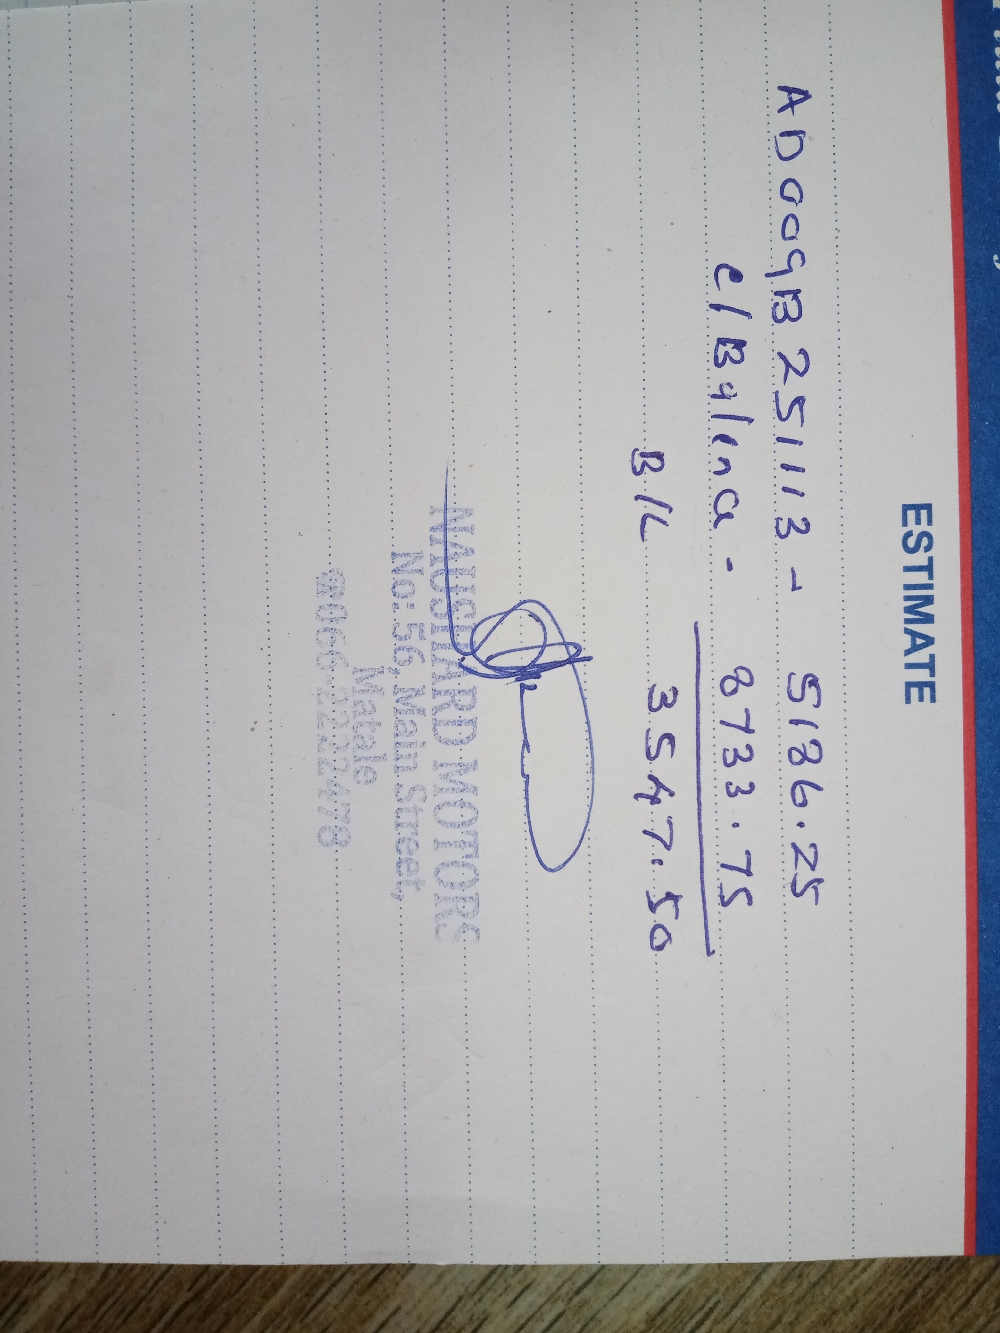 ESTIMATE
AD009B251113 - 5186.25
c/Balance - 8733.75
B/L 3547.50
NAUSHARD MOTORS
No: 56, Main Street,
Matale
066-2222478